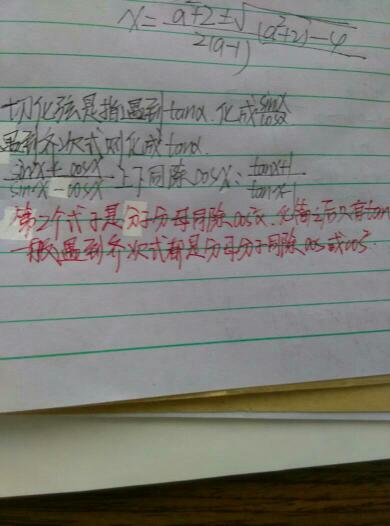 x = a²+2±√(a²+2)-4 / 2(a-1)
切化弦是指遇到tanα.化成sinα/cosα
遇到齐次式则化成tanα.
sinx+cosx/sinx-cosx 上下同除cosx: tanx+1/tanx-1
第2个式子是分子分母同除cos²x.化简之后只有tan
一般遇到齐次式都是分母分子同除cos或cos².